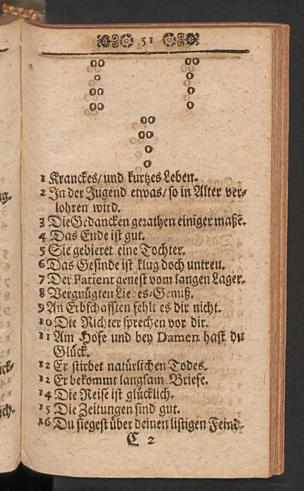 51
1 Kranckes/ und kurtzes Leben.
2 In der Jugend etwas/ so in Alter ver-
lohren wird.
3 Die Gedancken gerathen einiger maßē.
4 Das Ende ist gut.
5 Sie gebieret eine Tochter.
6 Das Gesinde ist klug doch untreu.
7 Der Patient genest vom langen Lager.
8 Vergnügten Liebes-Genuß.
9 An Erbschafften fehlt es dir nicht.
10 Die Richter sprechen vor dir.
11 Am Hofe und bey Damen hast du
Glück.
12 Er stirbet natürlichen Todes.
12 Er bekommt langsam Briefe.
14 Die Reise ist glücklich.
15 Die Zeitungen sind gut.
16 Du siegest über deinen listigen Feind.
C 2